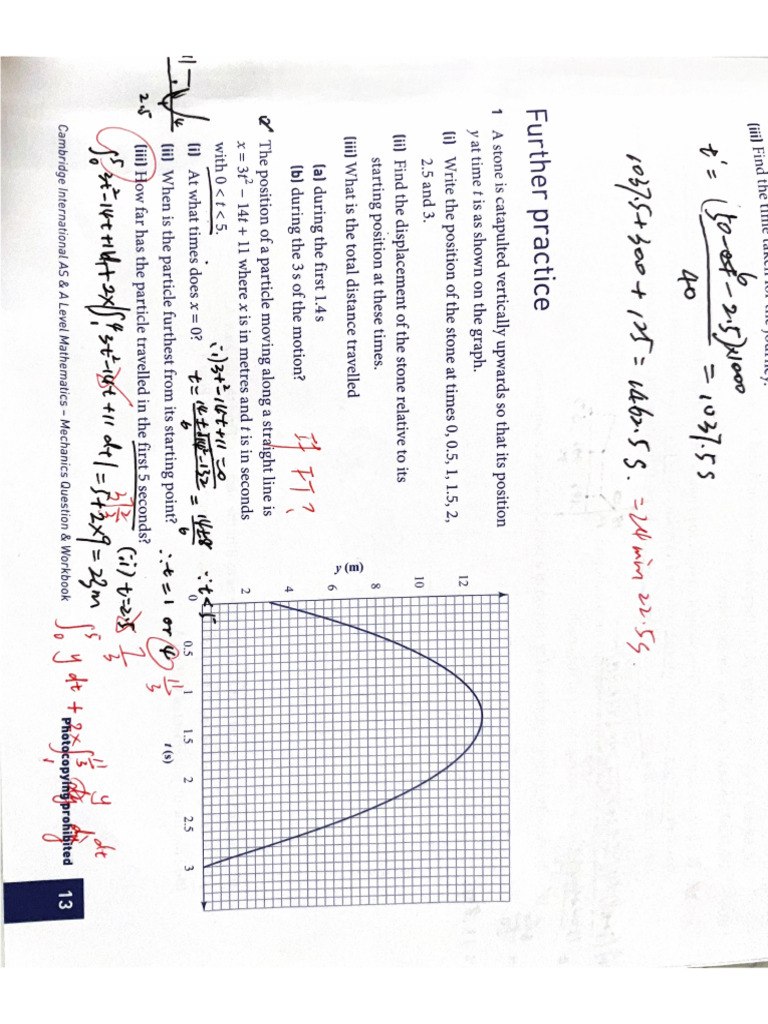 (iii) Find the time taken for the journey.
= 1037.5 s
40
1037.5 + 300 + 125 = 1462.5 s. = 24 min 22.5 s.
Further practice
1 A stone is catapulted vertically upwards so that its position
y at time t is as shown on the graph.
(i) Write the position of the stone at times 0, 0.5, 1, 1.5, 2,
2.5 and 3.
(ii) Find the displacement of the stone relative to its
starting position at these times.
(iii) What is the total distance travelled
(a) during the first 1.4 s
(b) during the 3 s of the motion?
The position of a particle moving along a straight line is
x = 3t² − 14t + 11 where x is in metres and t is in seconds
with 0 < t < 5.
(i) At what times does x = 0?
(ii) When is the particle furthest from its starting point?
(iii) How far has the particle travelled in the first 5 seconds?
y (m)
12
10
8
6
4
2
0
0.5
1
1.5
2
2.5
3
t (s)
(i) 3t² − 14t + 11 = 0
∵ t < 5
∴ t = 1 or 4
11/3
(ii) t = 2.5
7/3
2.5
= 5 + 2×9 = 23 m
Cambridge International AS & A Level Mathematics – Mechanics Question & Workbook
Photocopying prohibited
13